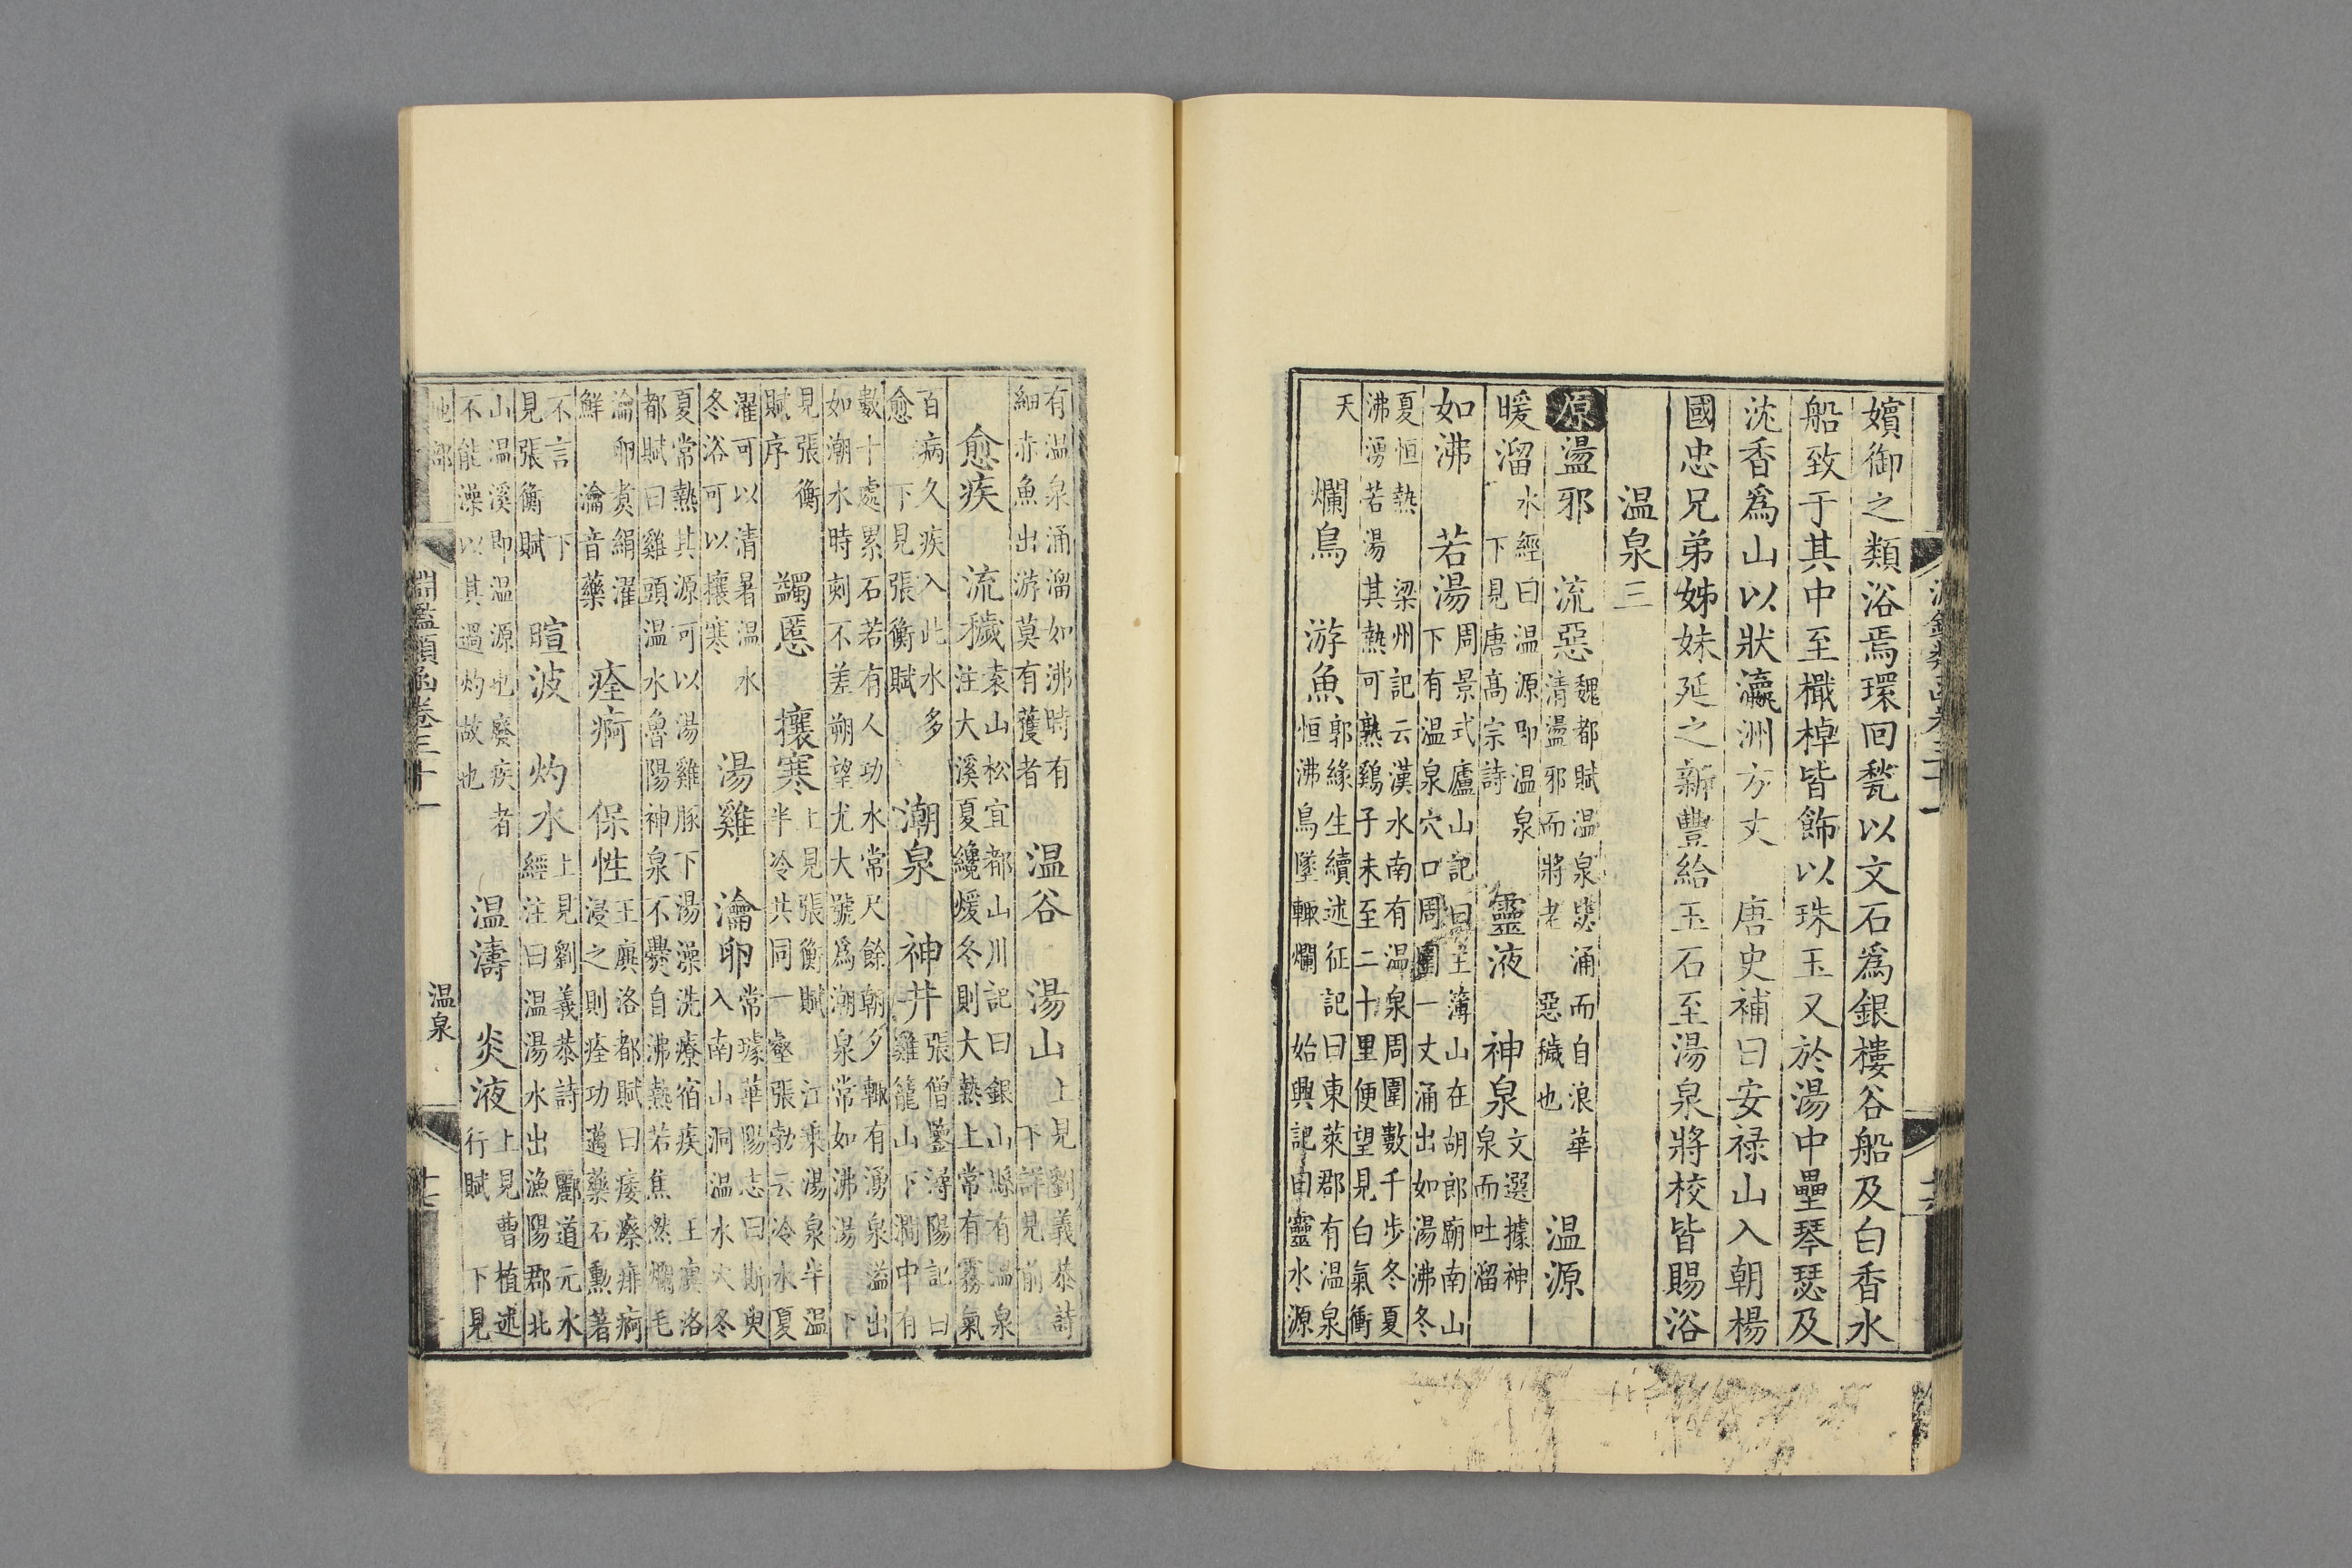 嬪御之類浴焉環回甃以文石爲銀樓谷船及白香水
船致于其中至檝棹皆飾以珠玉又於湯中壘琴瑟及
沈香爲山以狀瀛洲方丈　唐史補曰安禄山入朝楊
國忠兄弟姊妹延之新豐給玉石至湯泉將校皆賜浴
温泉三
原盪邪　流惡魏都賦温泉毖涌而自浪華
清盪邪而將老　惡穢也　温源
暖溜水經曰温源即温泉
下見唐高宗詩　靈液　神泉文選據神
泉而吐溜
如沸　若湯周景式廬山記曰主簿山在胡郎廟南山
下有温泉穴口周圍一丈涌出如湯沸冬
夏恒熱　梁州記云漢水南有温泉周圍數千步冬夏
沸湧若湯其熱可熟鷄子未至二十里便望見白氣衝
天　爛鳥　游魚郭緣生續述征記曰東萊郡有温泉
恒沸鳥墜輒爛　始興記曰靈水源
有温泉涌溜如沸時有
細赤魚出游莫有獲者　温谷　湯山上見劉義恭詩
下詳見前
愈疾　流穢袁山松宜都山川記曰銀山縣有温泉
注大溪夏纔煖冬則大熱上常有霧氣
百病久疾入此水多
愈　下見張衡賦　潮泉　神井張僧鑒潯陽記曰
雞籠山下澗中有
數十處累石若有人功水常尺餘朝夕輒有湧泉溢出
如潮水時刻不差朔望尤大號爲潮泉常如沸湯　下
見張衡
賦序　蠲慝　攘寒上見張衡賦　江乘湯泉半温
半冷共同一壑張勃云冷水夏
濯可以清暑温水
冬浴可以攘寒　湯雞　瀹卵常璩華陽志曰斯臾
入南山洞温水穴冬
夏常熱其源可以湯雞豚下湯澡洗療宿疾　王廙洛
都賦曰雞頭温水魯陽神泉不爨自沸熱若焦然爛毛
瀹卵煑絹濯
鮮　瀹音藥　痊痾　保性王廙洛都賦曰痿瘵痱痾
浸之則痊功邁藥石勲著
不言　下
見張衡賦　暄波　灼水上見劉義恭詩　酈道元水
經注曰温湯水出漁陽郡北
山温溪即温源也療疾者
不能澡以其過灼故也　温濤　炎液上見曹植述
行賦　下見
淵鑑類函卷三十一
温泉